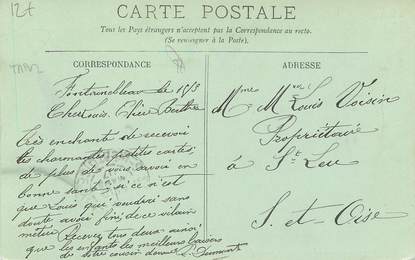 12f
CARTE POSTALE
Tous les Pays étrangers n'acceptent pas la Correspondance au recto.
(Se renseigner à la Poste).
CORRESPONDANCE
ADRESSE
Fontainebleau le 15/3
Cher Louis. Chère Berthe
Très enchanté de recevoir
les charmantes petites cartes
de plus de vous savoir en
bonne santé si ce n'est
que Louis qui voudrai sans
doute avoir fini, de ce vilain
métier Recevez tous deux ainsi
que les enfants les meilleurs baisers
de votre cousin Dumont
Mme M Louis Voisin
Propriétaire
à St Leu
S. et Oise